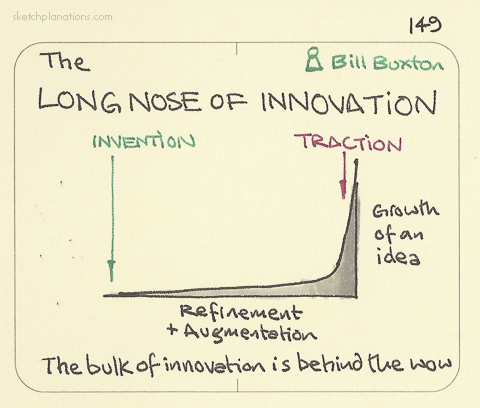 sketchplanations.com
149
The
Bill Buxton
LONG NOSE OF INNOVATION
INVENTION
TRACTION
Growth
of an
idea
Refinement
+ Augmentation
The bulk of innovation is behind the wow